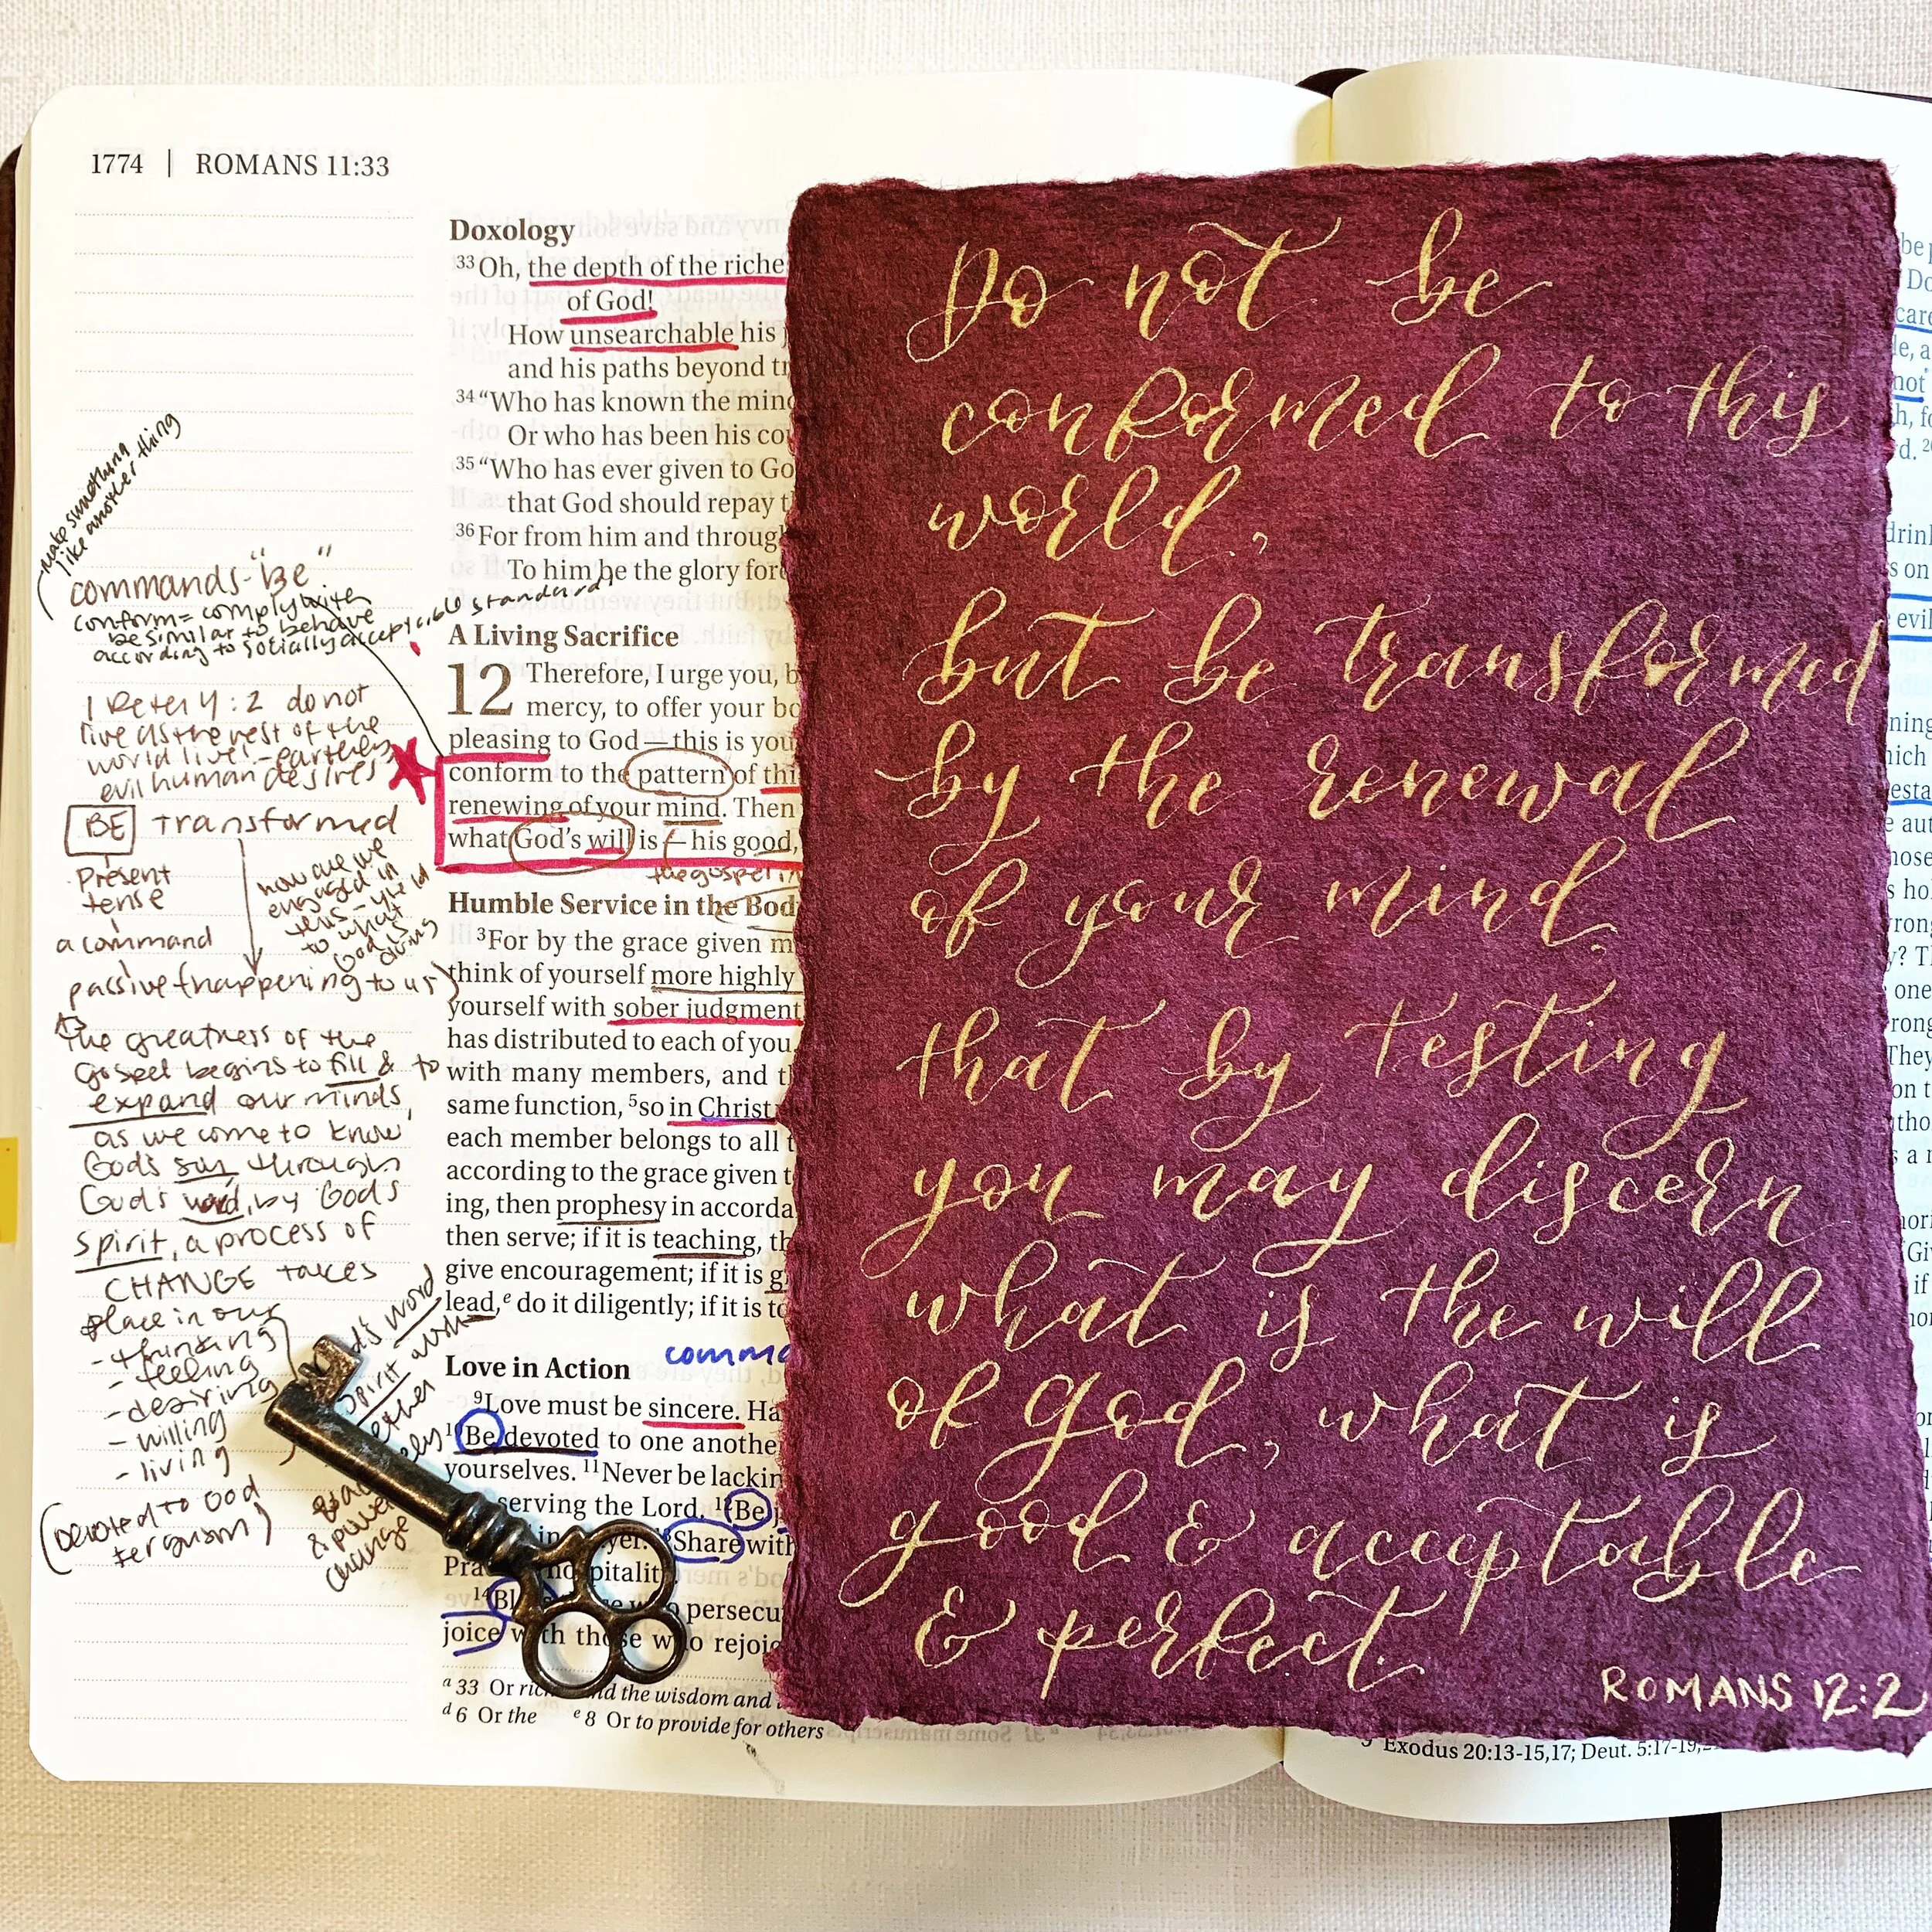 1774 | ROMANS 11:33
make something
like another thing
commands - "Be"
conform = comply with
be similar to behave
according to socially acceptable standard
1 Peter 4:2 do not
live as the rest of the
world live! - earthly
evil human desires
BE transformed
present
tense
a command
passive (happening to us)
how are we
engaged in
this - yield
to what
God is
doing
the greatness of the
Gospel begins to fill & to
expand our minds,
as we come to know
God's son through
God's word, by God's
spirit, a process of
CHANGE takes
place in our
- thinking
- feeling
- desiring
- willing
- living
(Devoted to God
Ferguson)
God's word
spirit
change
Doxology
33 Oh, the depth of the riche
of God!
How unsearchable his
and his paths beyond
34 “Who has known the min
Or who has been his
35 “Who has ever given to Go
that God should repay
36 For from him and throug
To him be the glory
A Living Sacrifice
12 Therefore, I urge you,
mercy, to offer your
pleasing to God—this is you
conform to the pattern of
renewing of your mind. Then
what God's will is—his good,
the gospel
Humble Service in the
3 For by the grace given
think of yourself more highly
yourself with sober judgment
has distributed to each of you.
with many members, and
same function, 5 so in Christ
each member belongs to all
according to the grace given
ing, then prophesy in
then serve; if it is teaching,
give encouragement; if it is
lead,e do it diligently; if it is
Love in Action
9 Love must be sincere.
10 Be devoted to one anothe
yourselves. 11 Never be lackin
serving the Lord. 12 Be
in Share with
14 persecu
joice with those who rejoi
a 33 Or and the wisdom and
d 6 Or the e 8 Or to provide for others
Do not be
conformed to this
world,
but be transformed
by the renewal
of your mind.
that by testing
you may discern
what is the will
of god, what is
good & acceptable
& perfect.
ROMANS 12:2
Exodus 20:13-15,17; Deut. 5:17-19,